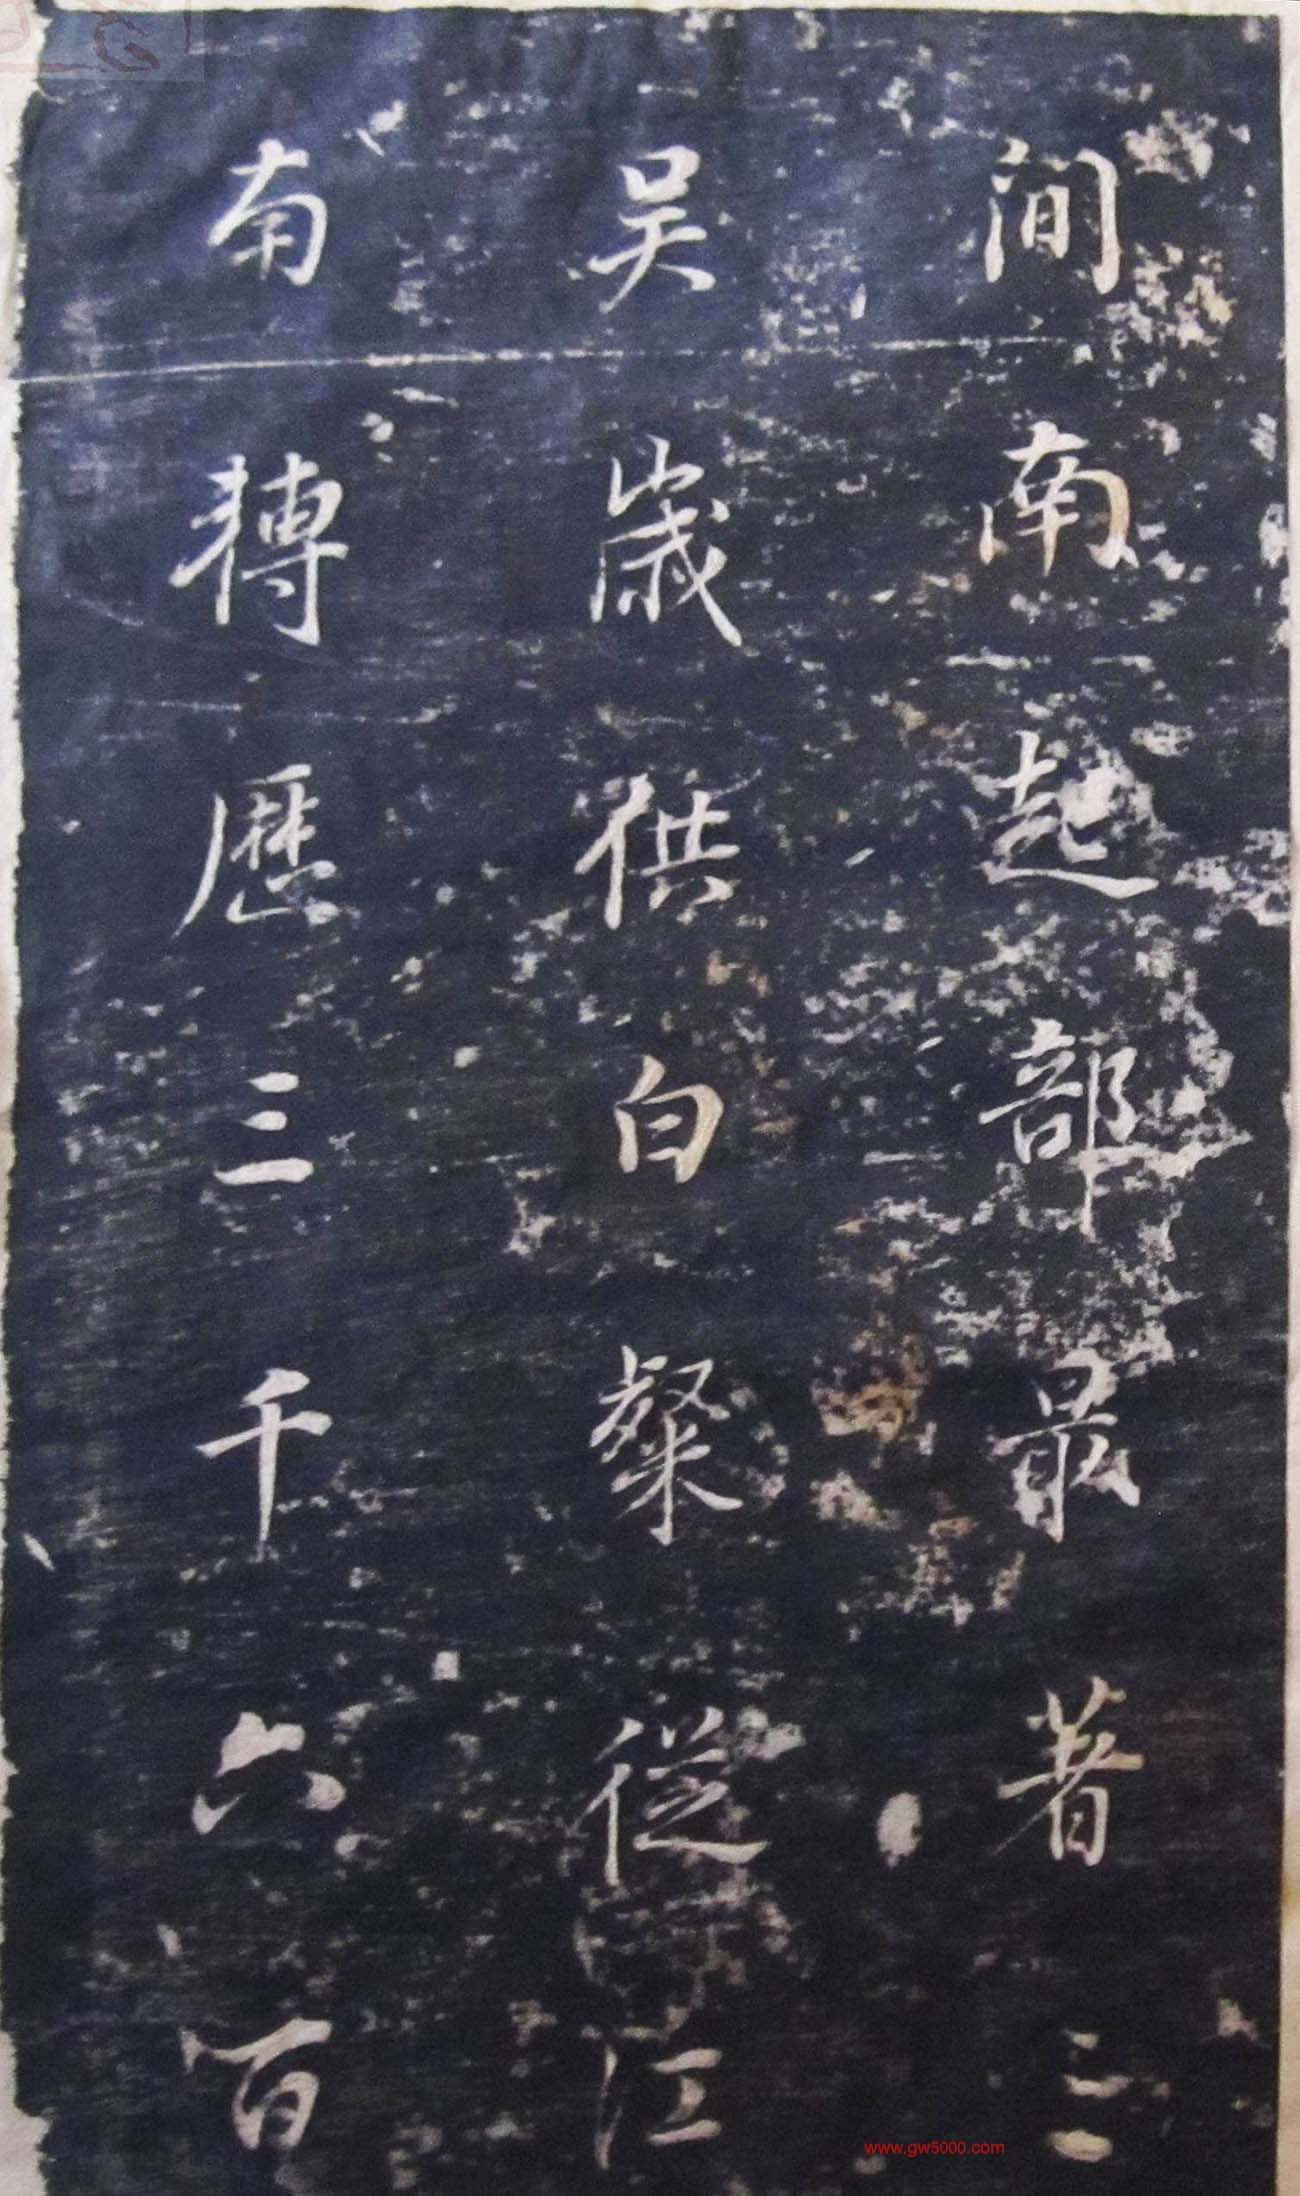 间南起部最著三
吴歲供白粲從江
南轉歷三千六百
www.gw5000.com